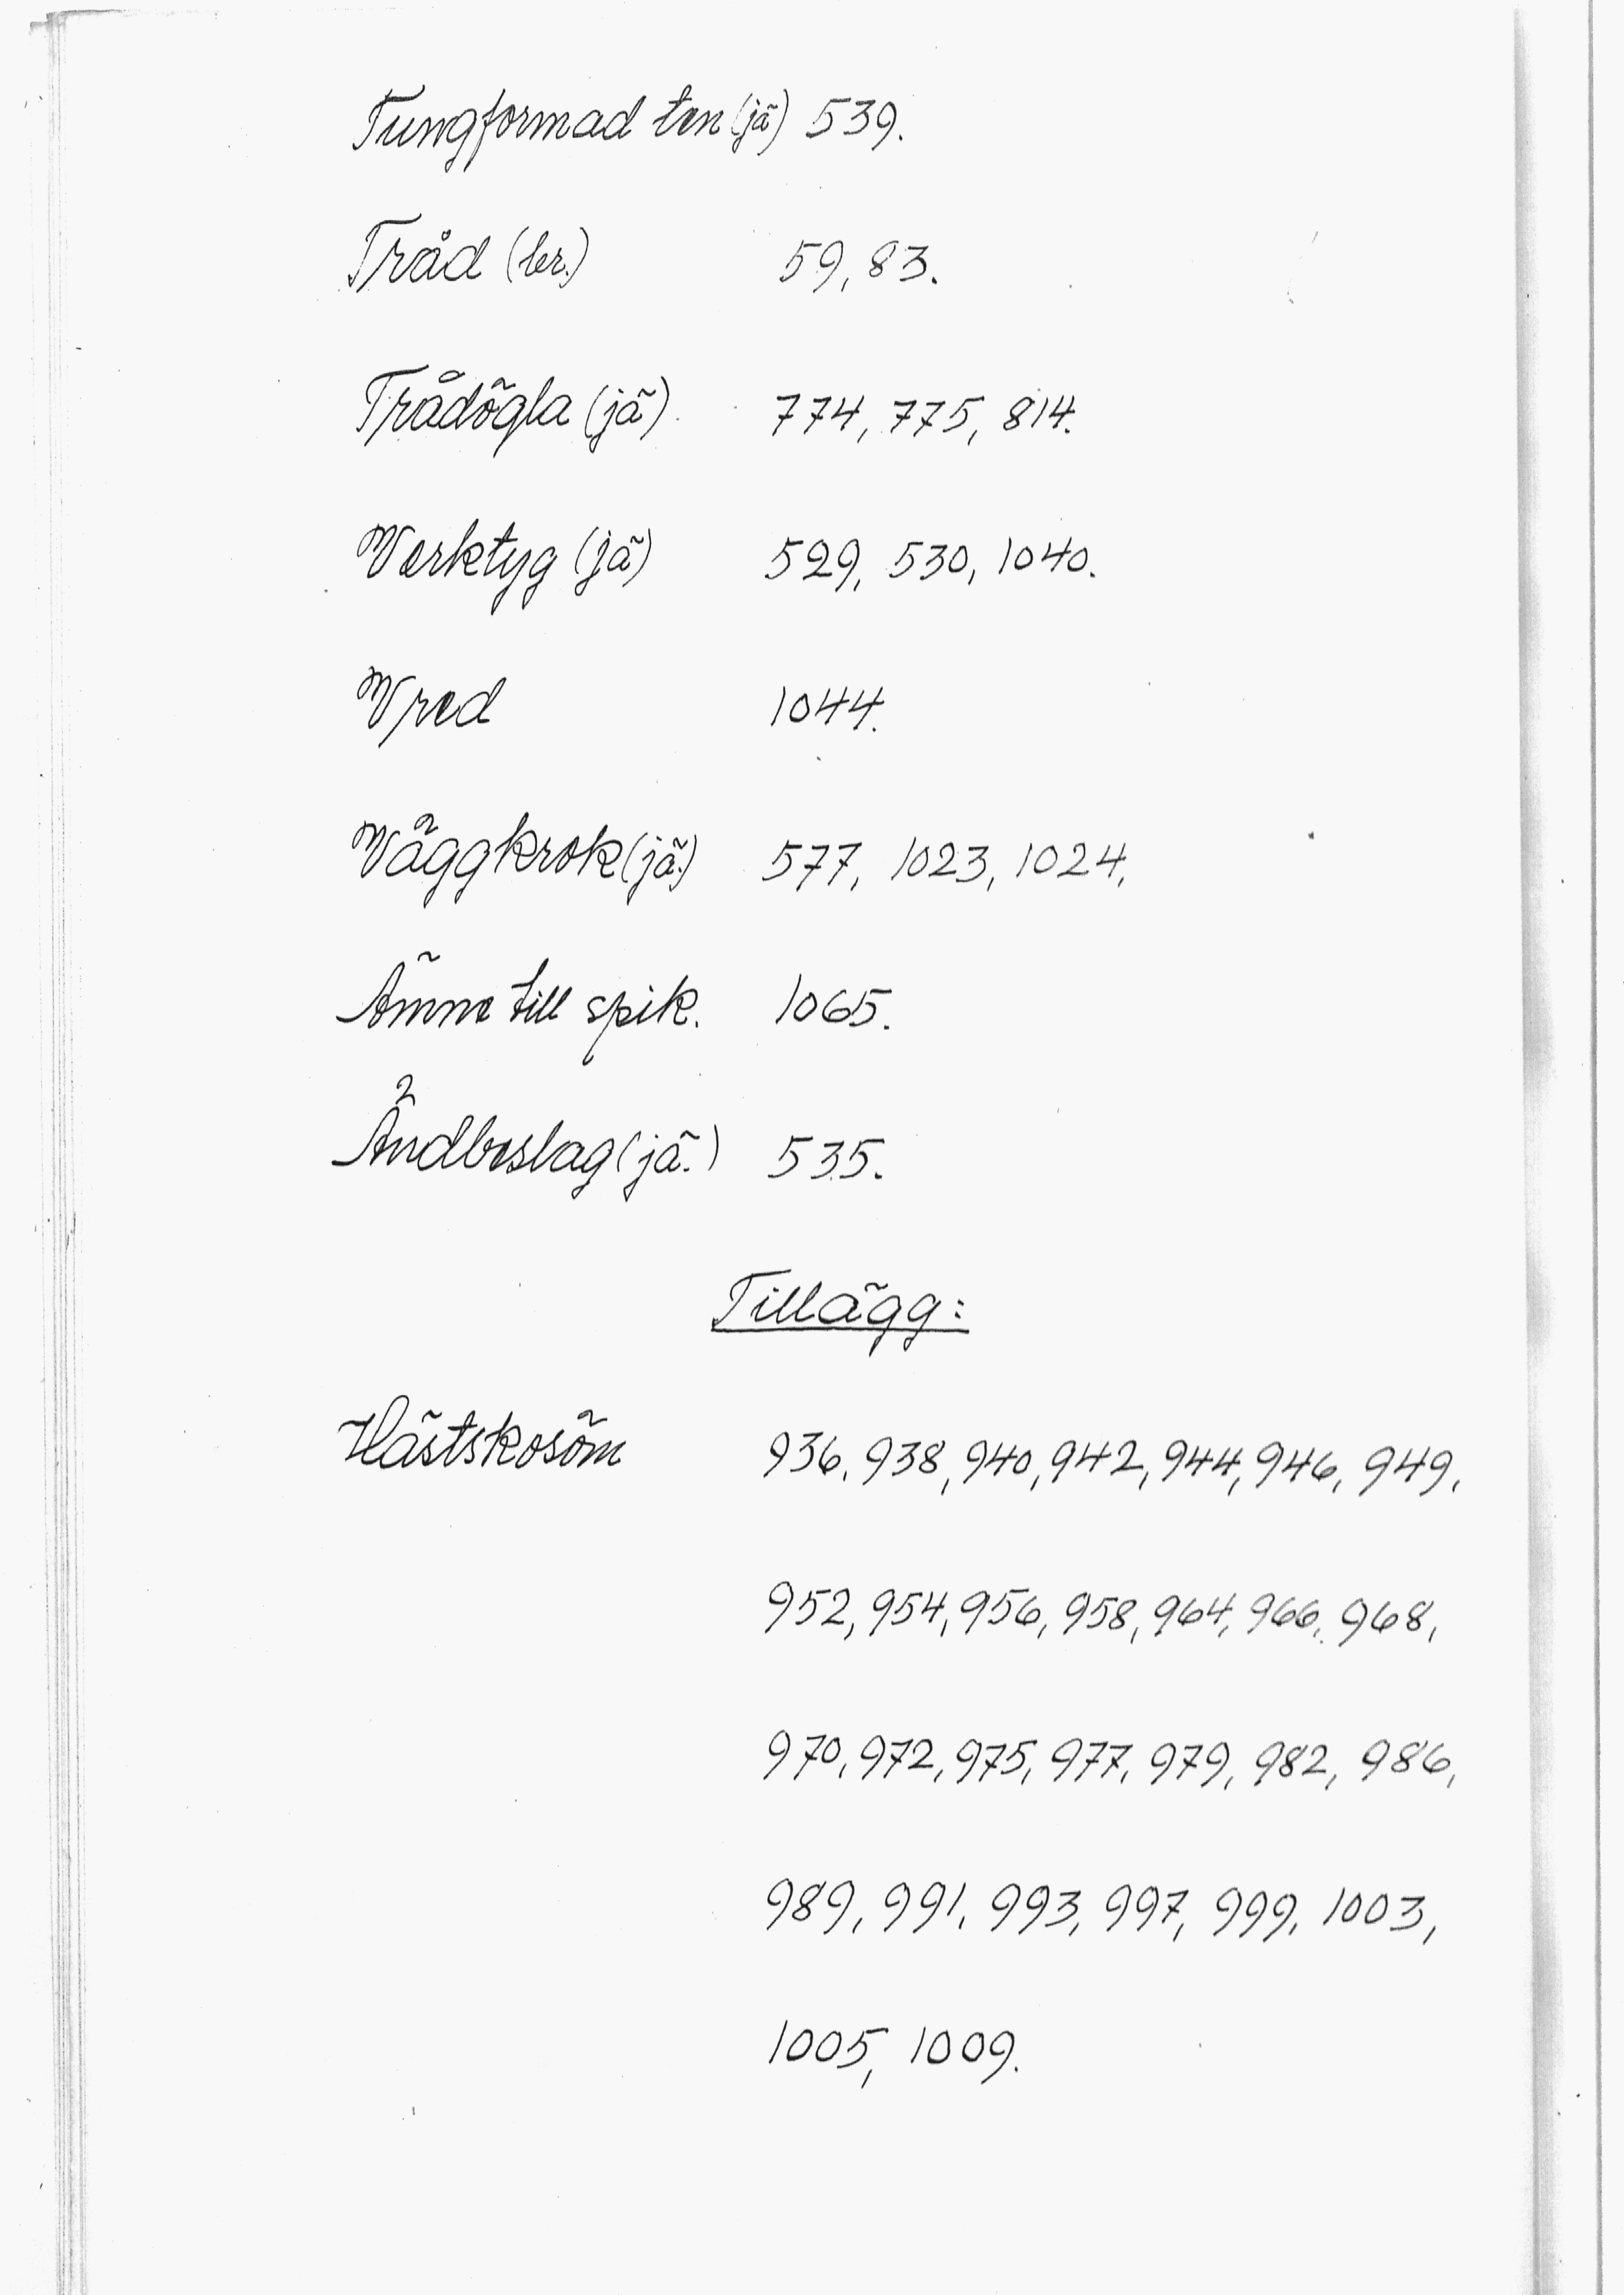 Tungformad ten (jä) 539.
Tråd (br.) 59, 83.
Trådögla (jä) 774, 775, 814.
Verktyg (jä) 529, 530, 1040.
Vred 1044.
Väggkrok (jä.) 577, 1023, 1024,
Ämne till spik. 1065.
Ändbeslag (jä.) 535.
Tillägg:
Hästskosöm 936, 938, 940, 942, 944, 946, 949,
952, 954, 956, 958, 964, 966, 968,
970, 972, 975, 977, 979, 982, 986,
989, 991, 993, 997, 999, 1003,
1005, 1009.